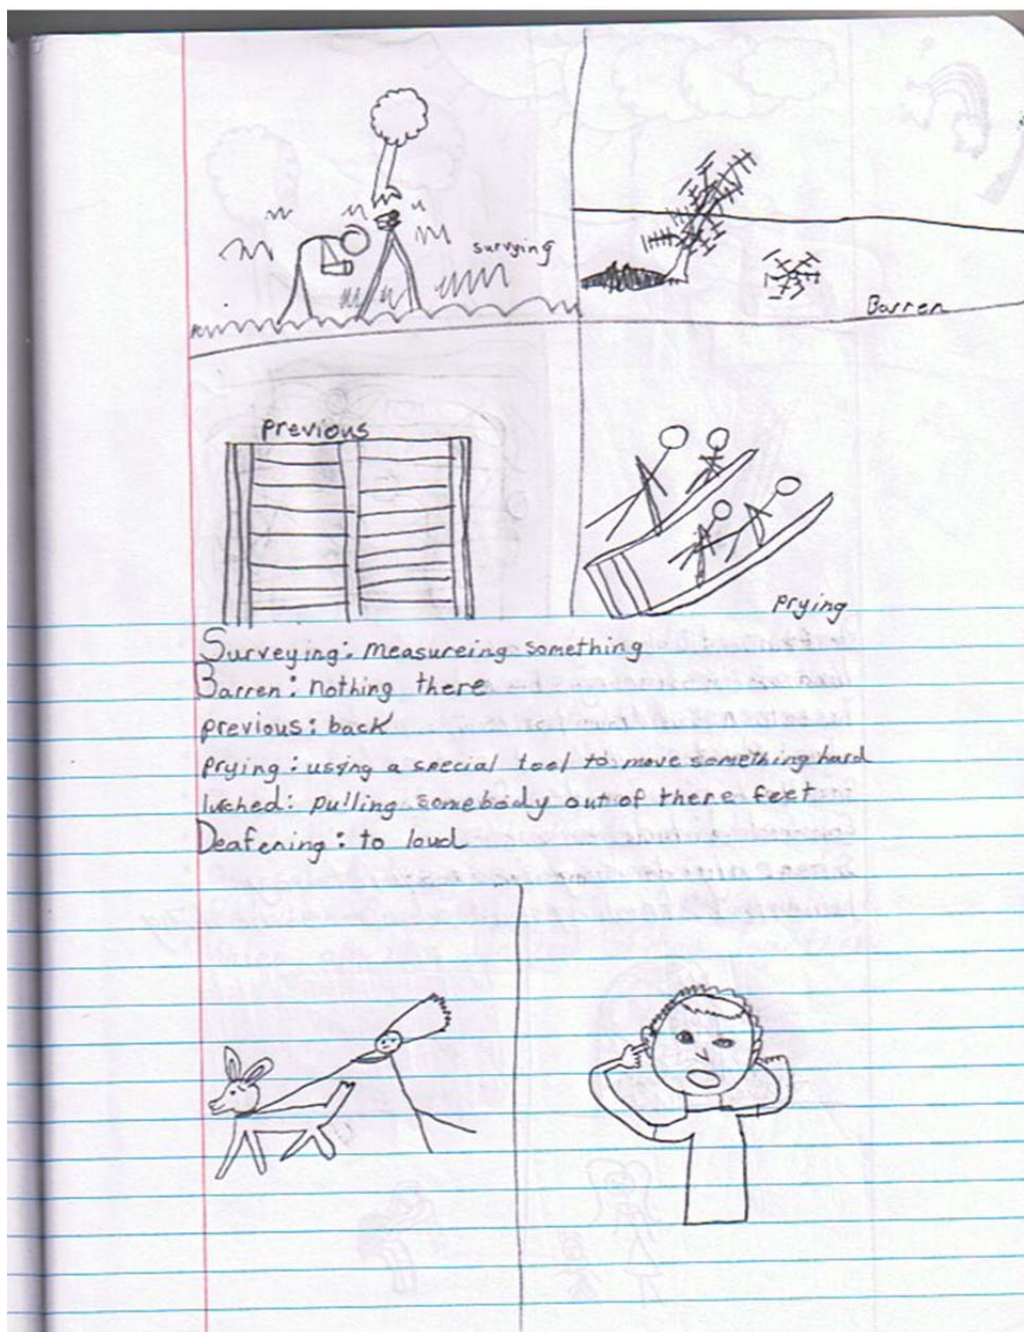 survying
Barren
previous
prying
Surveying: measureing something
Barren: nothing there
previous: back
prying: using a special tool to move something hard
luched: pulling somebody out of there feet
Deafening: to loud